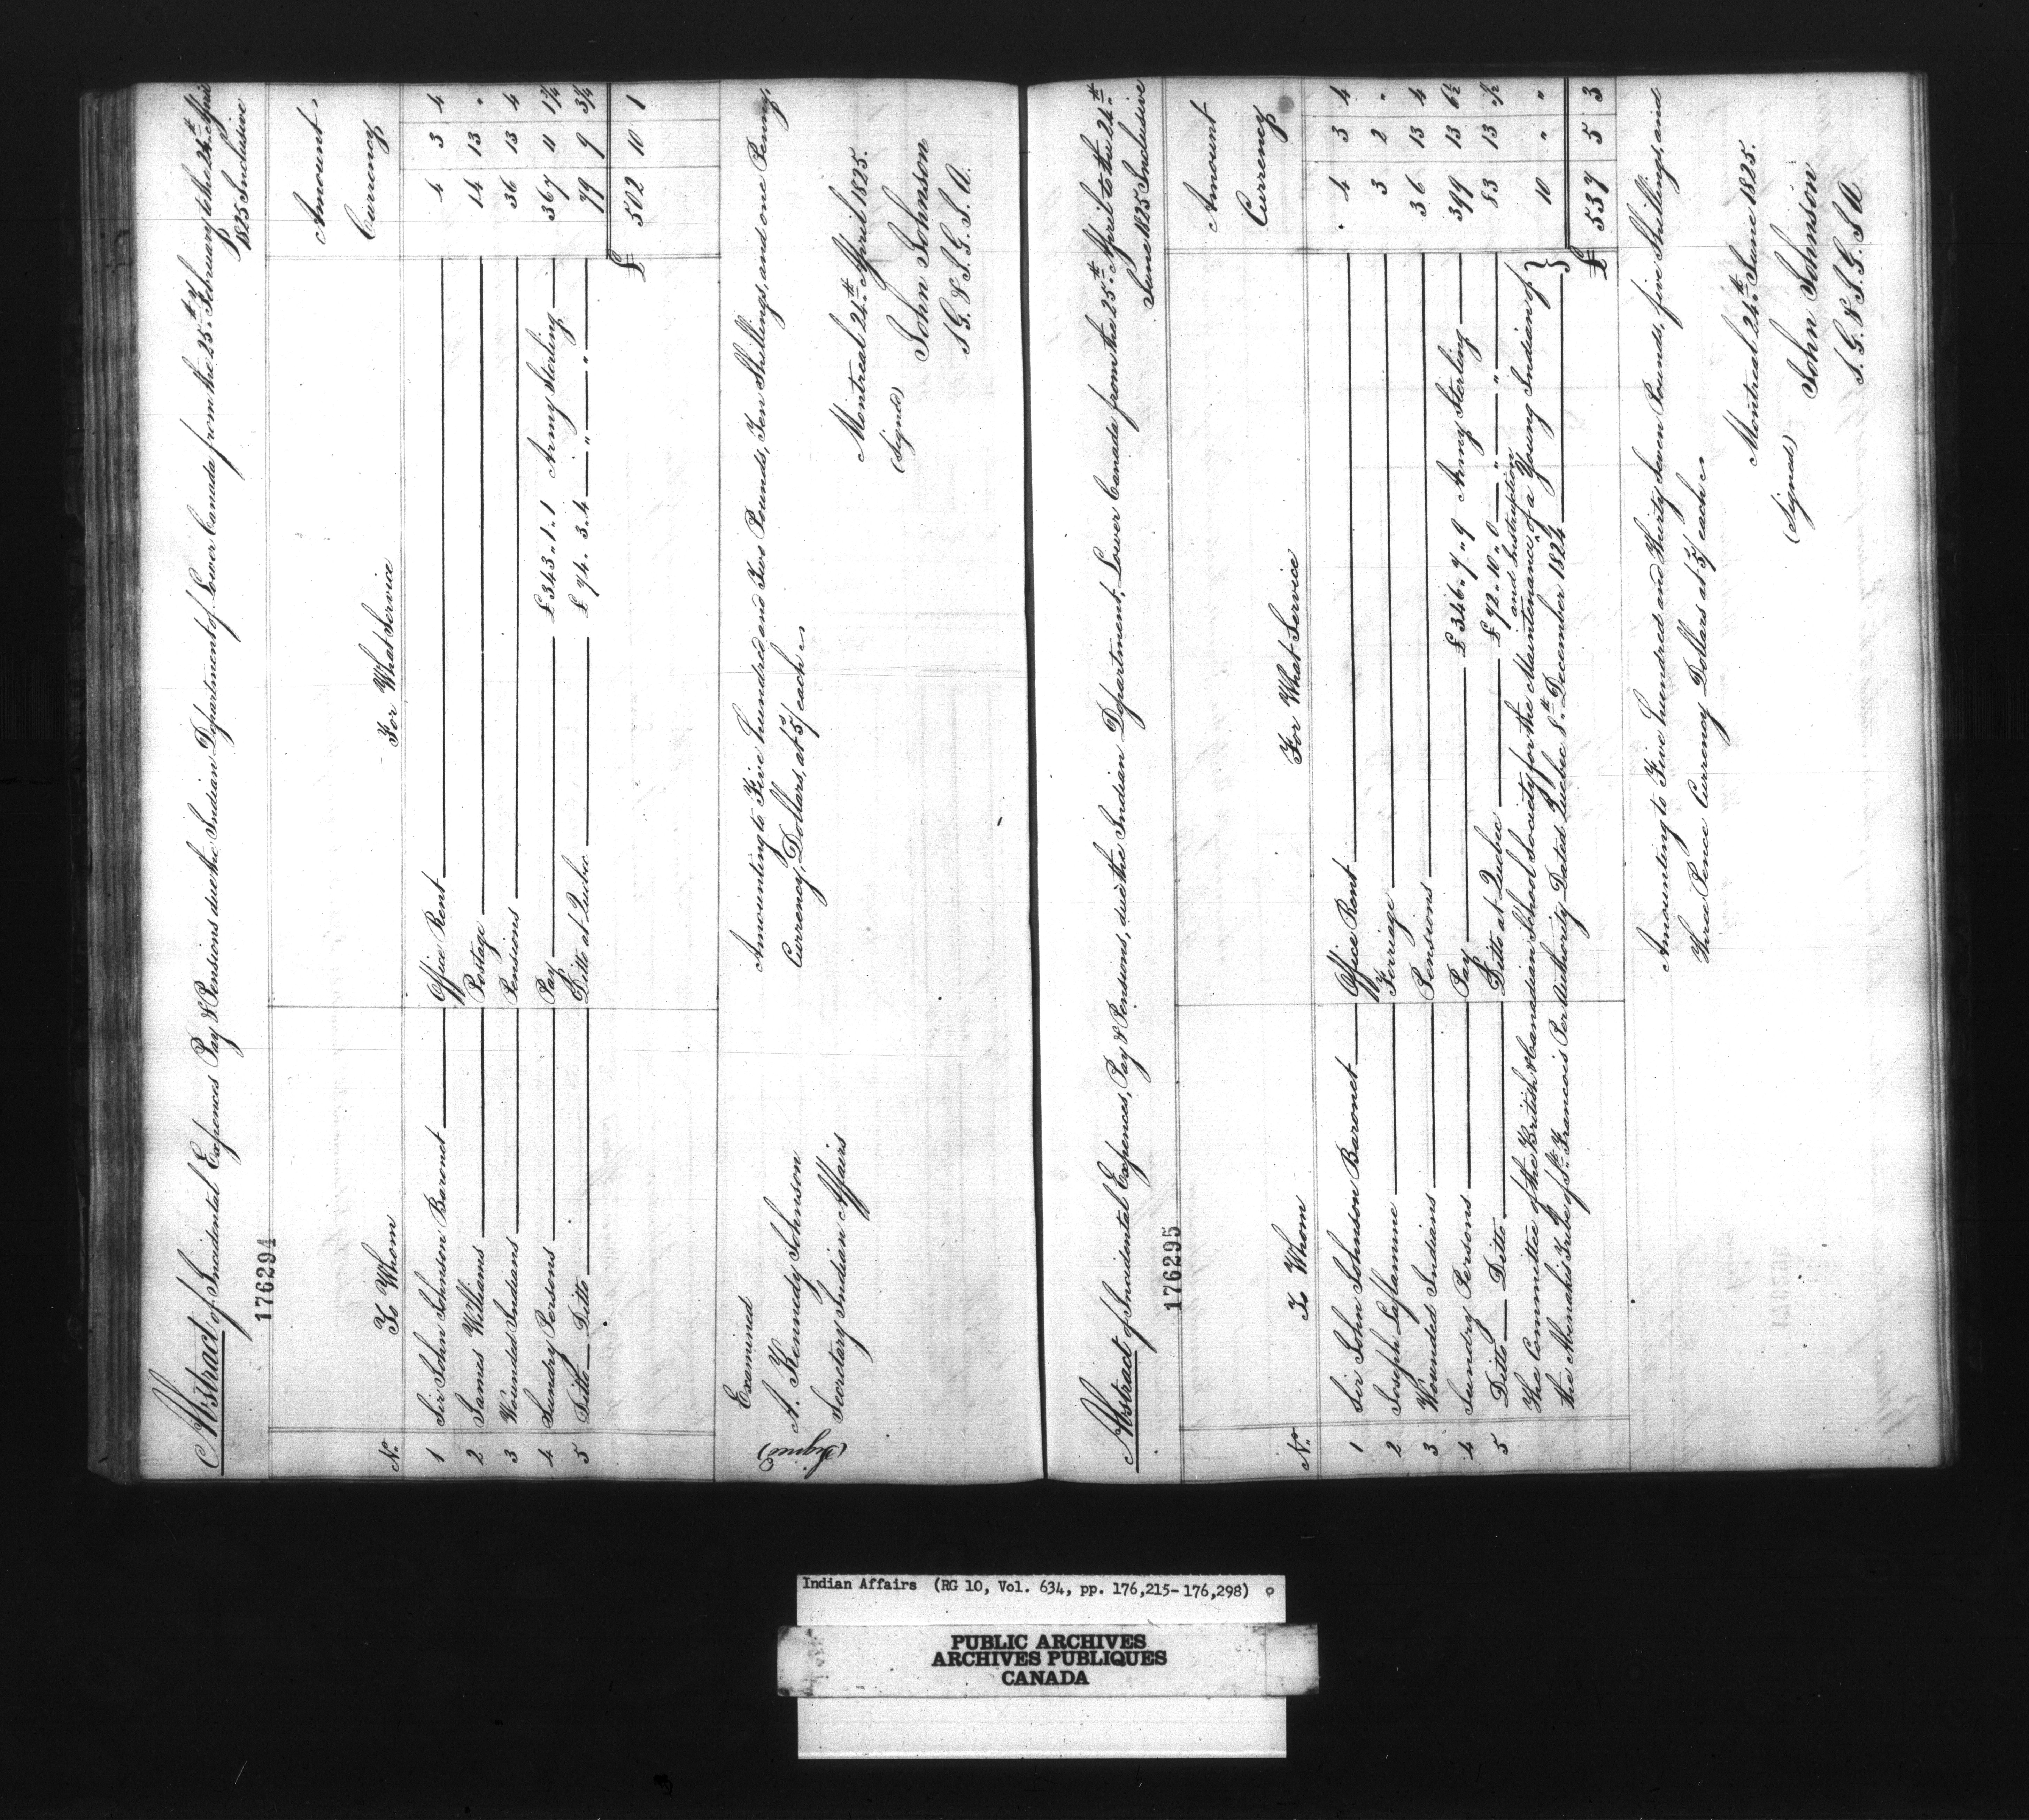 Abstract of Incidental Expences Pay & Pensions due the Indian Department of Lower Canada from the 25th February to the 24th April
1825 Inclusive
176294
No. To Whom For What Service Amount Currency
1 Sir John Johnson Baronet Office Rent 4 3 4
2 James Williams Postage 14 13 "
3 Wounded Indians Pensions 36 13 4
4 Sundry Persons Pay £343 " 1 " 1 Army Sterling 367 11 1¾
5 Ditto Ditto Ditto at Quebec £74 " 3 " 4 " " 79 9 3¼
£ 502 10 1
Amounting to Five hundred and Two Pounds, Ten Shillings, and one Penny,
Currency, Dollars, at 5/ each
Montreal 24th April 1825.
(signed) John Johnson
S. G. & I. G. I. A.
Examined
(Signed) A. Kennedy Johnson
Secretary Indian Affairs
Abstract of Incidental Expences, Pay & Pensions, due the Indian Department, Lower Canada from the 25th April to the 24th
June 1825 Inclusive
176295
No. To Whom For What Service Amount Currency
1 Sir John Johnson Baronet Office Rent 4 3 4
2 Joseph Laflamme Ferriage 3 2 "
3 Wounded Indians Pensions 36 13 4
4 Sundry Persons Pay £346 " 7 " 9 Army Sterling 399 13 6½
5 Ditto Ditto Ditto at Quebec £72 " 10 " 0 " " 83 13 ½
The Committee of the British & Canadian School Society for the Maintenance and instruction of a Young Indian of
the Abenakis Tribe of St. Francois Per Authority Dated Quebec 8th December 1824 10 " "
£ 537 5 3
Amounting to Five hundred and thirty Seven Pounds, five Shillings, and
Three Pence Currency Dollars at 5/ each
Montreal 24th June 1825.
(signed) John Johnson
S. G. & I. G. I. A
Indian Affairs (RG 10, Vol. 634, pp. 176,215-176,298)
PUBLIC ARCHIVES
ARCHIVES PUBLIQUES
CANADA